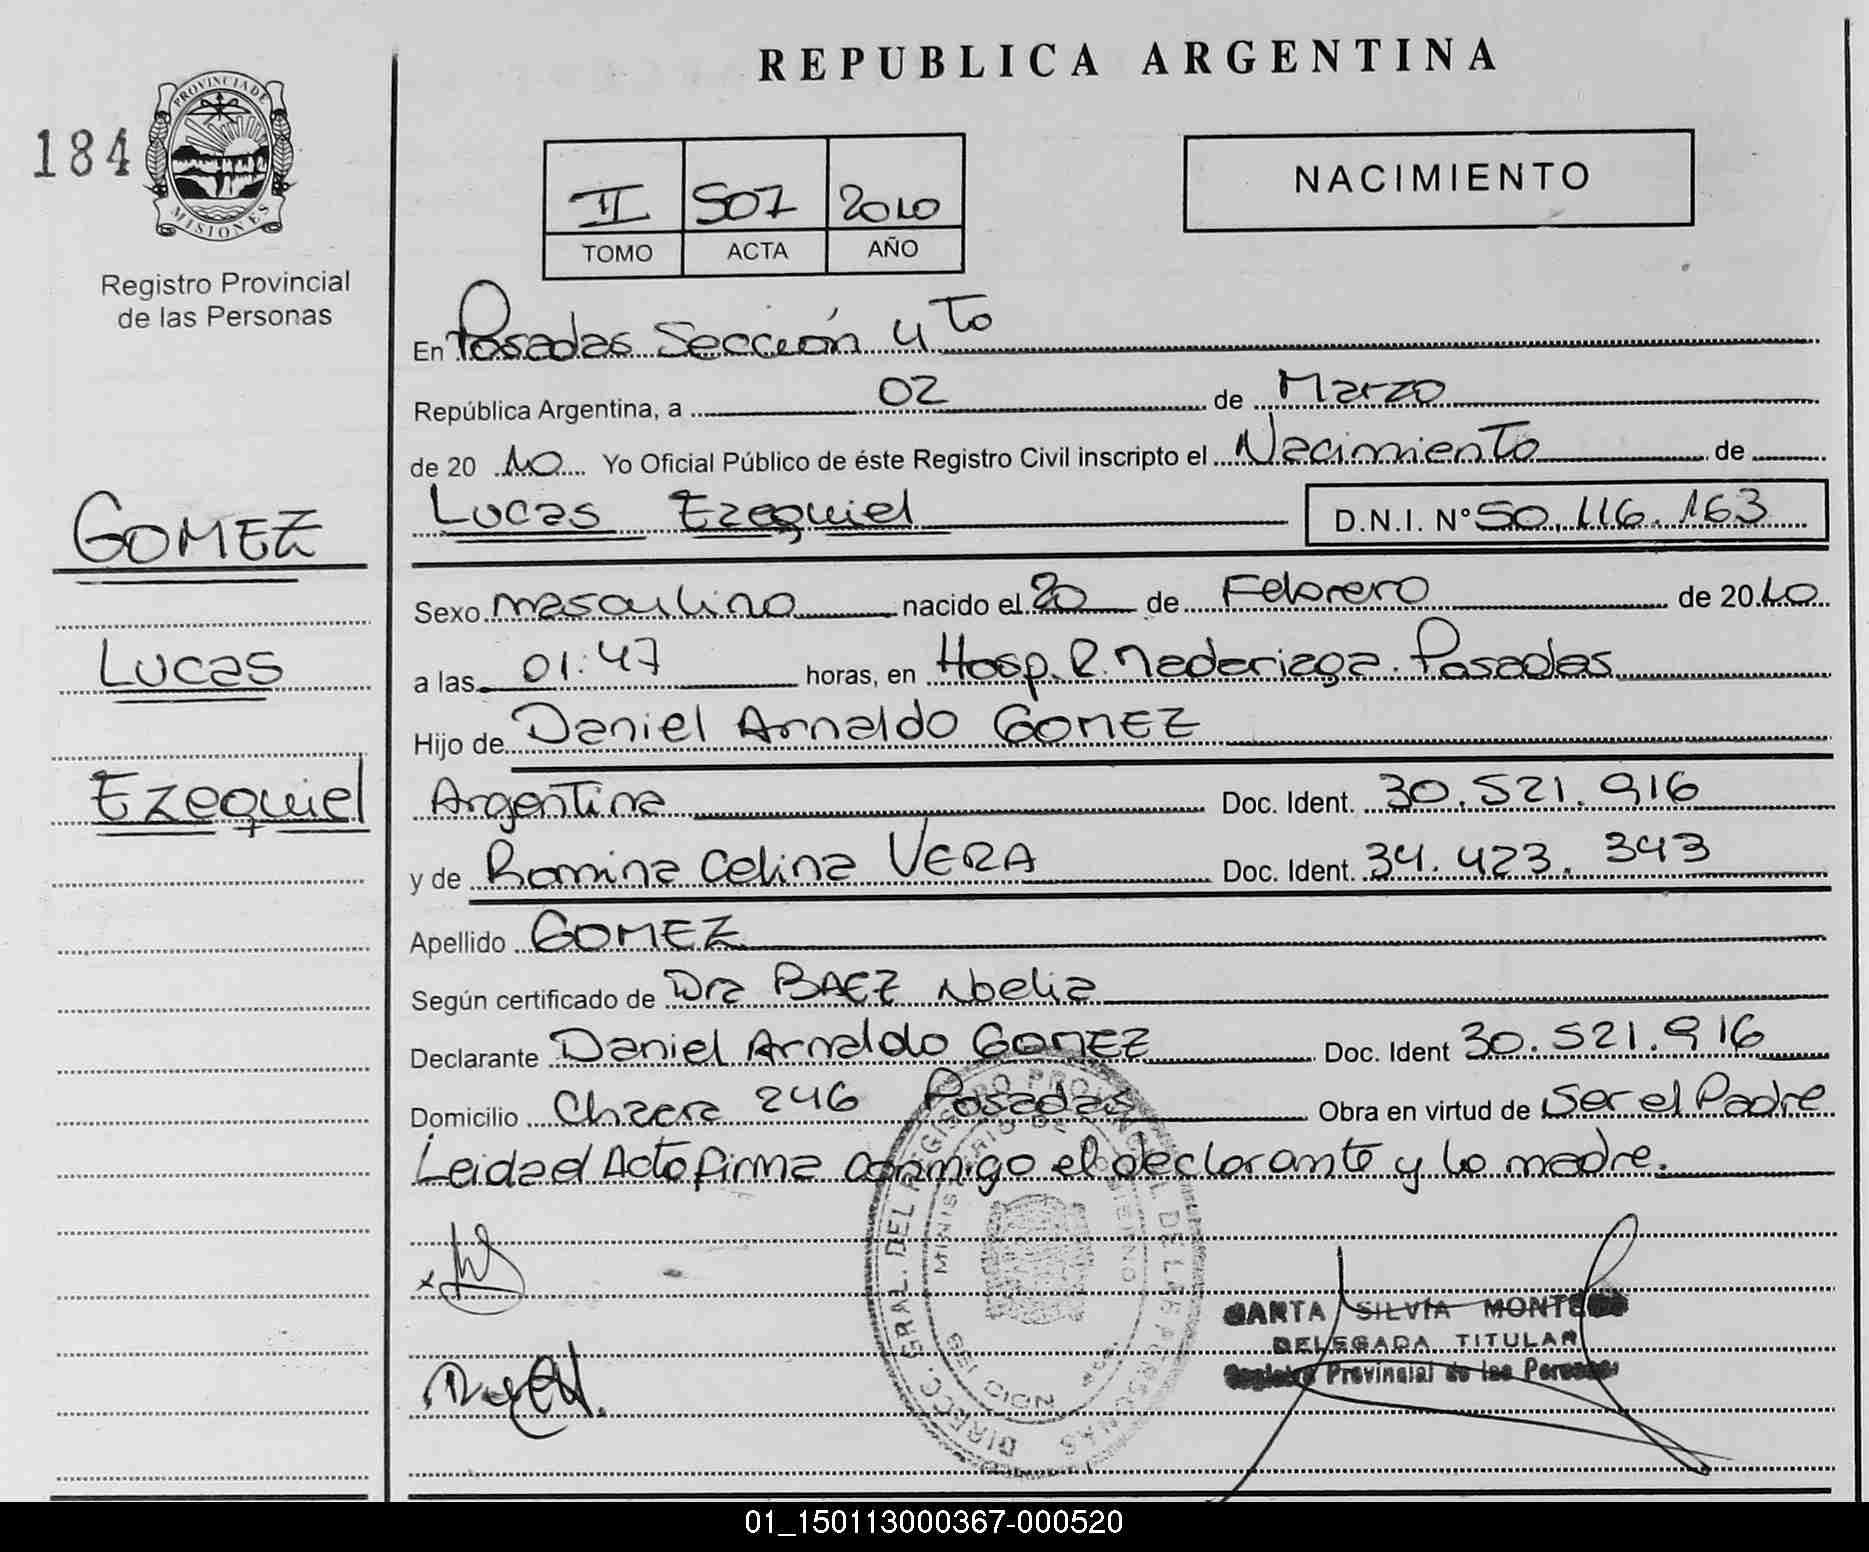 REPUBLICA ARGENTINA
184
PROVINCIA DE
MISIONES
Registro Provincial
de las Personas
II 507 2010
TOMO ACTA AÑO
NACIMIENTO
En Posadas Sección 4to
República Argentina, a 02 de Marzo
de 20 10 Yo Oficial Público de éste Registro Civil inscripto el Nacimiento de
Lucas Ezequiel D.N.I. Nº 50.116.163
GOMEZ
Lucas
Ezequiel
Sexo masculino nacido el 20 de Febrero de 2010
a las 01:47 horas, en Hosp. R. Madariaga. Posadas
Hijo de Daniel Arnaldo GOMEZ
Argentina Doc. Ident. 30.521.916
y de Romina Celina VERA Doc. Ident. 34.423.343
Apellido GOMEZ
Según certificado de Dra BAEZ Noelia
Declarante Daniel Arnaldo GOMEZ Doc. Ident 30.521.916
Domicilio Chacra 246 Posadas Obra en virtud de Ser el Padre
Leida el Acto firma conmigo el declarante y la madre.
DIRECC. GRAL. DEL REGISTRO PROVINCIAL DE LAS PERSONAS
MINISTERIO DE GOBIERNO
SILVIA
DELEGADA TITULAR
Registro Provincial de las Personas
01_150113000367-000520